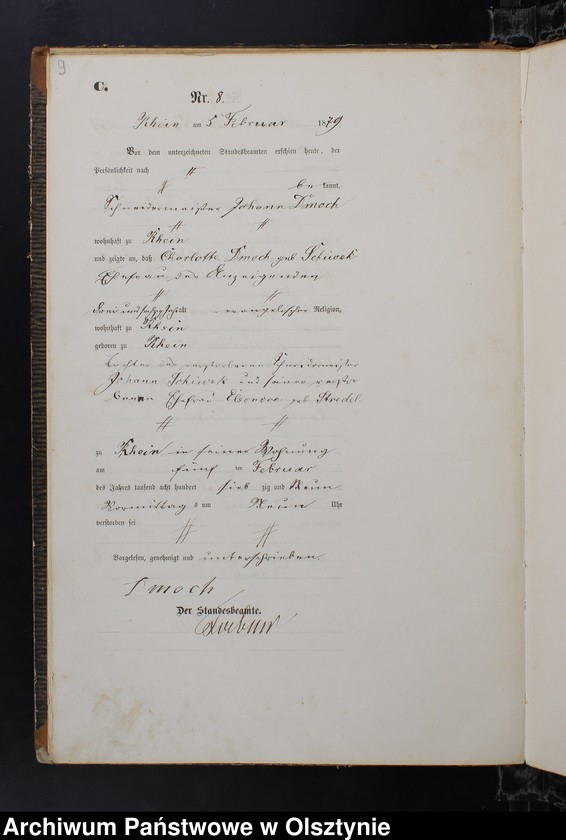 9
C.
Nr. 8.
Rhein am 5 Februar 1879.
Vor dem unterzeichneten Standesbeamten erschien heute, der
Persönlichkeit nach
be kannt,
Schneidermeister Johann Dmoch
wohnhaft zu Rhein
und zeigte an, daß Charlotte Dmoch geb
Ehefrau des Anzeigenden
alt evangelischer Religion,
wohnhaft zu Rhein
geboren zu Rhein
Tochter des verstorbenen Schneidermeister
Johann und seiner verstor
benen Ehefrau Eleonore geb
zu Rhein in seiner Wohnung
am fünf ten Februar
des Jahres tausend acht hundert sieb zig und Neun
Vormittag s um Neun Uhr
verstorben sei
Vorgelesen, genehmigt und unterschrieben.
Dmoch
Der Standesbeamte.
Archiwum Państwowe w Olsztynie